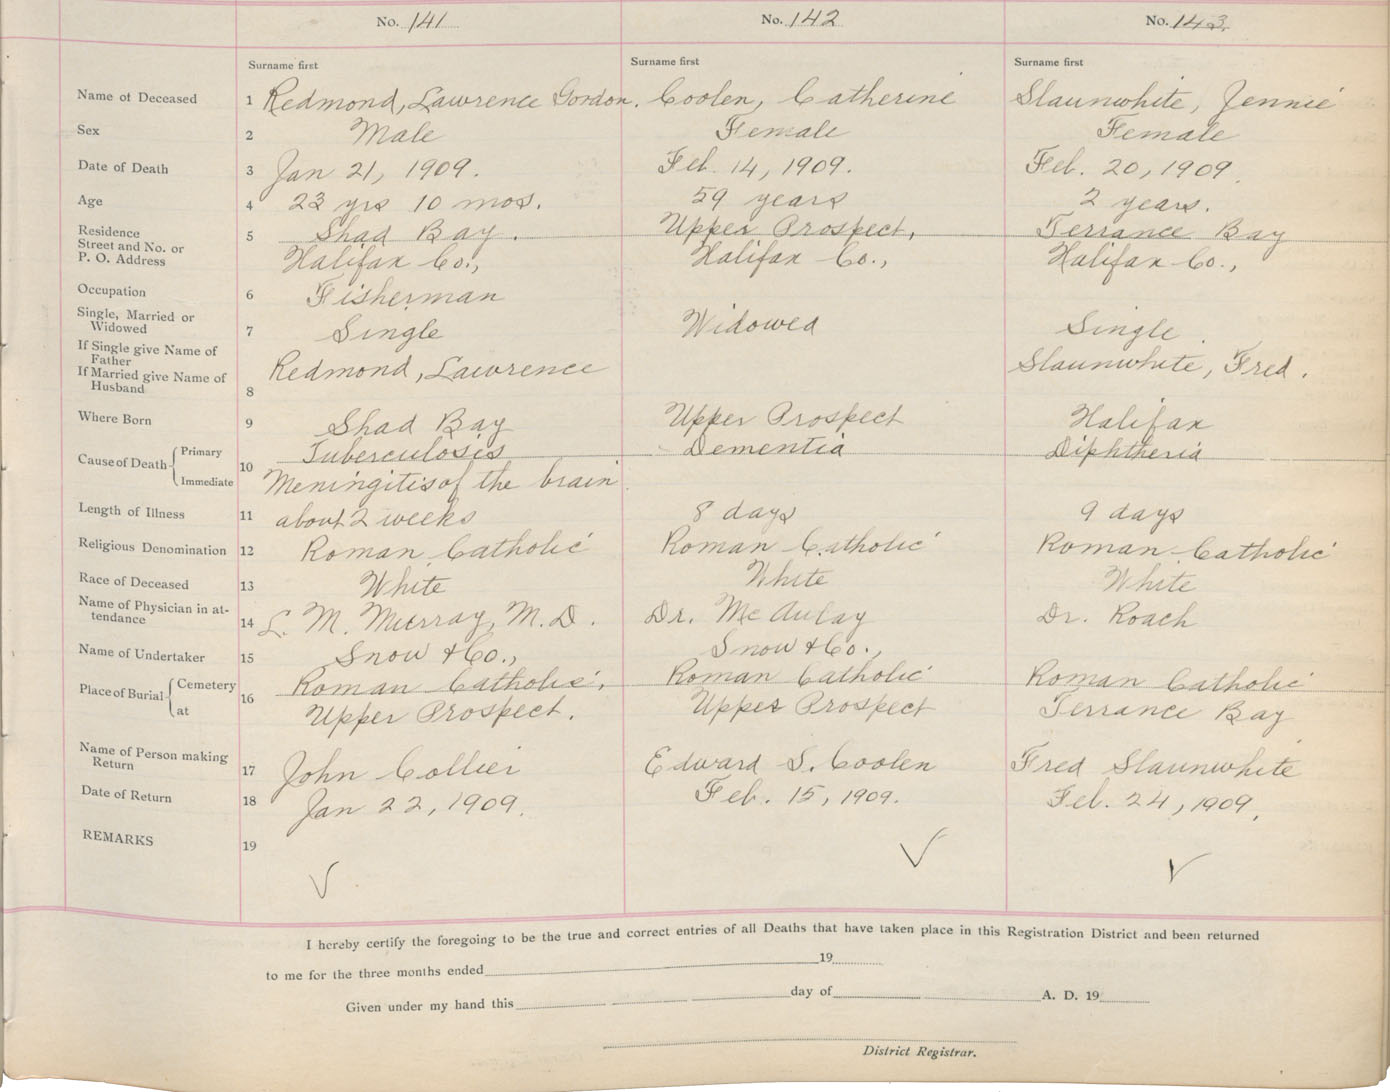 No. 141 No. 142 No. 143
Surname first Surname first Surname first
Name of Deceased 1 Redmond, Lawrence Gordon. Coolen, Catherine Slaunwhite, Jennie
Sex 2 Male Female Female
Date of Death 3 Jan 21, 1909. Feb. 14, 1909. Feb. 20, 1909.
Age 4 23 yrs 10 mos. 59 years 2 years.
Residence 5 Shad Bay. Upper Prospect, Terrance Bay
Street and No. or
P. O. Address Halifax Co., Halifax Co., Halifax Co.,
Occupation 6 Fisherman
Single, Married or
Widowed 7 Single Widowed Single
If Single give Name of
Father Redmond, Lawrence Slaunwhite, Fred.
If Married give Name of
Husband 8
Where Born 9 Shad Bay Upper Prospect Halifax
Cause of Death Primary 10 Tuberculosis Dementia Diphtheria
Immediate Meningitis of the brain
Length of Illness 11 about 2 weeks 8 days 9 days
Religious Denomination 12 Roman Catholic Roman Catholic Roman Catholic
Race of Deceased 13 White White White
Name of Physician in at-
tendance 14 L. M. Murray, M. D. Dr. McAulay Dr. Roach
Name of Undertaker 15 Snow & Co., Snow & Co.,
Place of Burial Cemetery 16 Roman Catholic, Roman Catholic Roman Catholic
at Upper Prospect. Upper Prospect Terrance Bay
Name of Person making
Return 17 John Collier Edward S. Coolen Fred Slaunwhite
Date of Return 18 Jan 22, 1909. Feb. 15, 1909. Feb. 24, 1909.
REMARKS 19
I hereby certify the foregoing to be the true and correct entries of all Deaths that have taken place in this Registration District and been returned
to me for the three months ended 19
Given under my hand this day of A. D. 19
District Registrar.